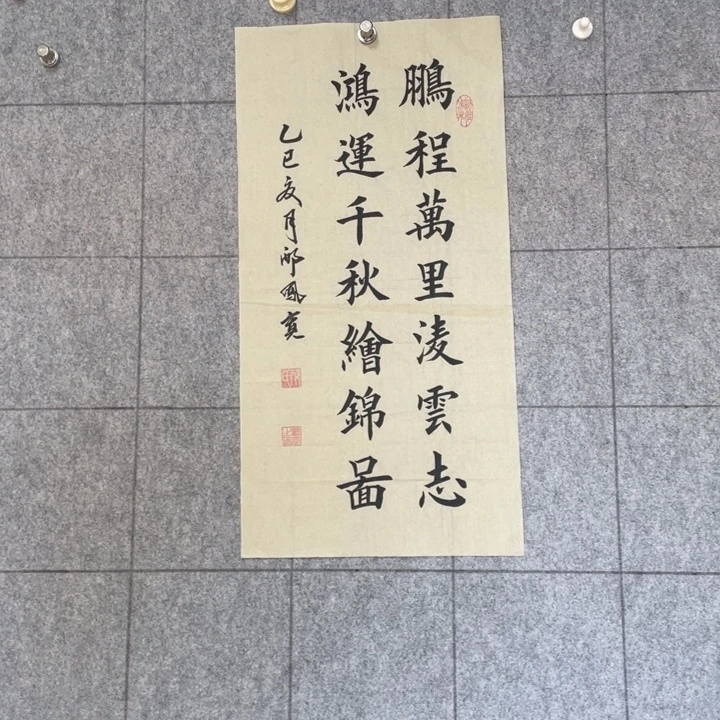 鵬程萬里淩雲志
鴻運千秋繪錦啚
乙巳夏月